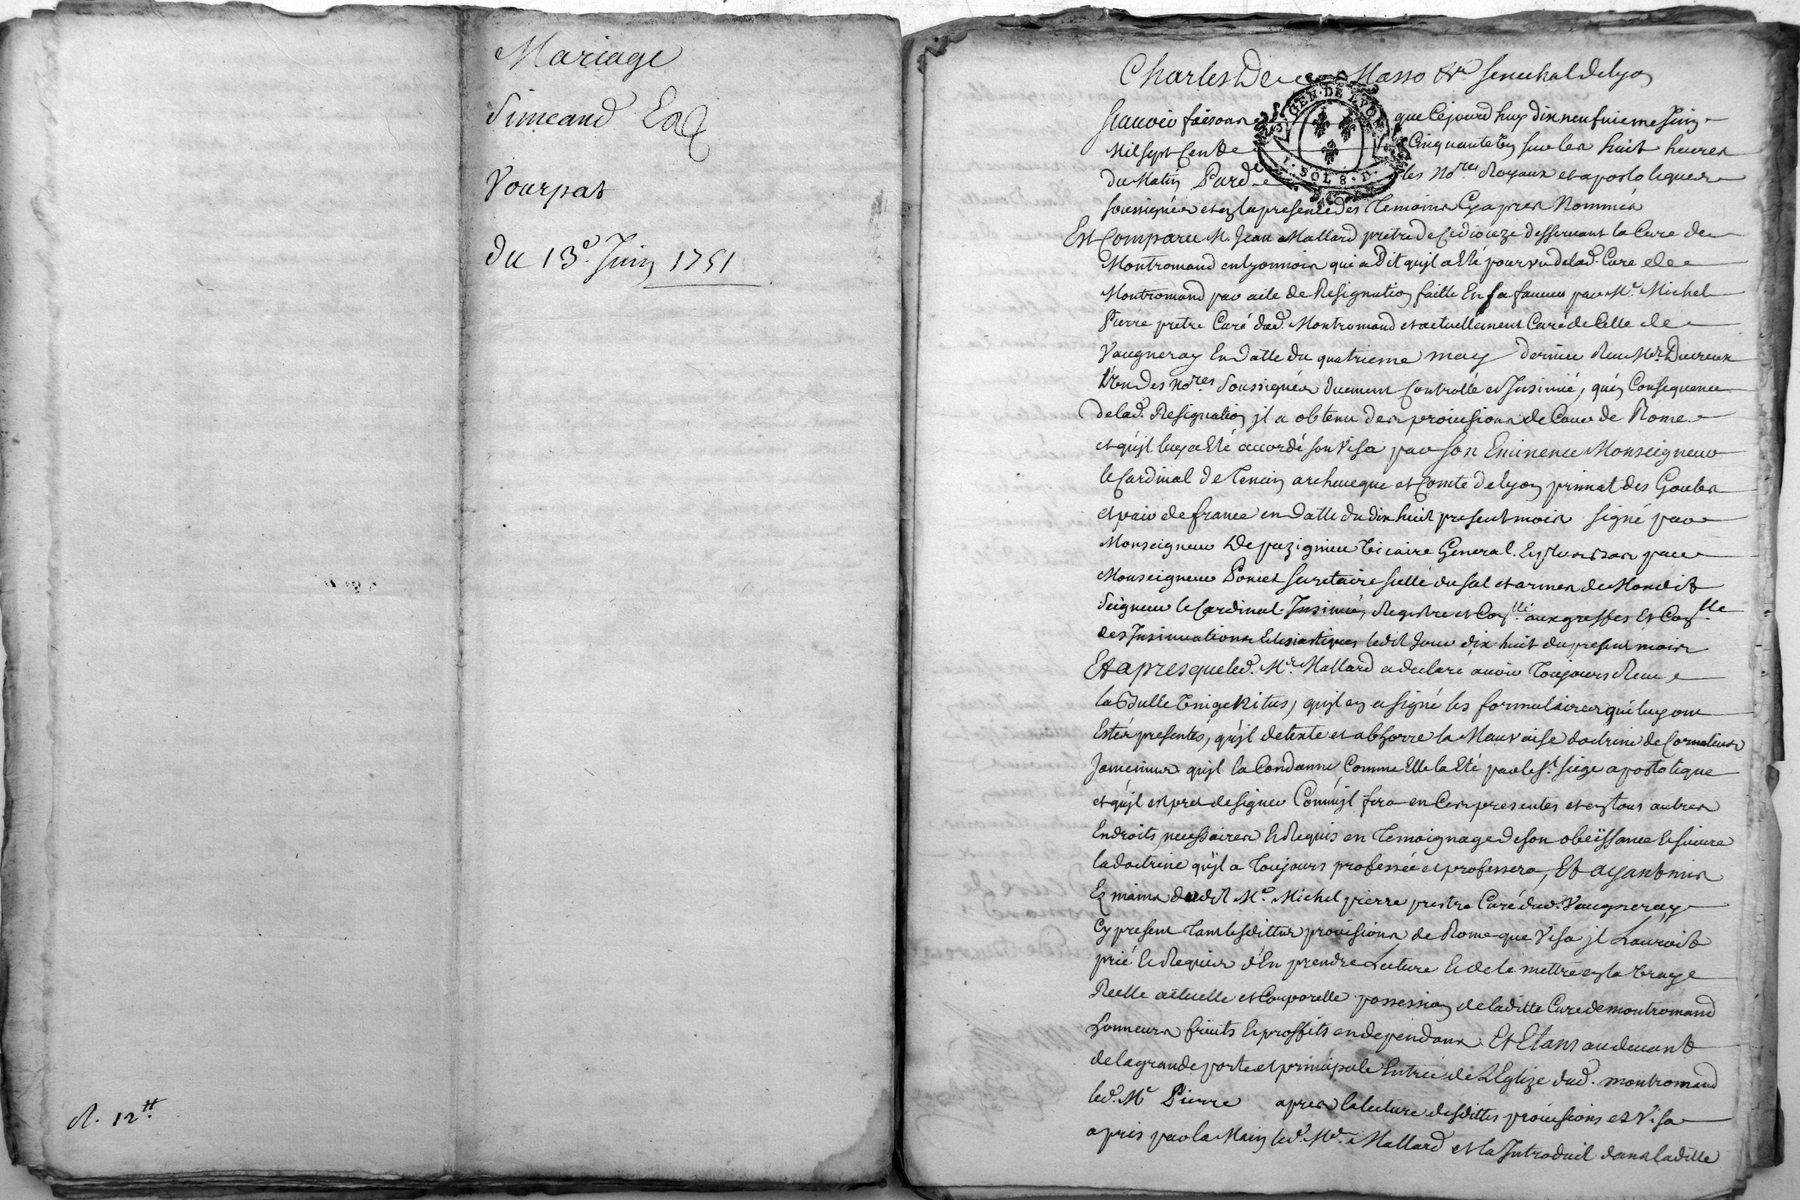 Mariage
Simeand Et
Vourpat
du 13e Juin 1751
R. 12tt
Charles De Masso &c Senechal de lyon
GEN. DE LYON
1. SOL 8. D.
Scavoir faisons que Cejourd'huy dix neufuieme Juin
Mil sept Cent Cinquante Un sur les huit heures
Du Matin Pard. les No.res Royaux et apostoliques
soussignés et en la presence des Temoins Cy apres Nommés
Est Comparu M. Jean Mallard pretre de Ce dioceze desservant la Cure de
Montromand en lyonnois qui a Dit qu'jl a Eté pourvu de lad. Cure de
Montromand par acte de Resignation faitte En sa faueur par Mr. Michel
Pierre pretre Curé dud. Montromand et actuellement Curé de Celle de
Vaugneray En datte du quatrieme may dernier Receu Mr. Ducreux
L'un des No.res Soussignés duement Controllé et Insinué, qu'en Consequence
de lad. Resignation jl a obtenu des prouisions de Cour de Rome
et qu'jl luy a Eté accordé son Visa par son Eminence Monseigneur
le Cardinal de Tencin archeueque et Comte de lyon primat des Gaules
et pair de france en datte du dix huit present mois signé par
Monseigneur De puzignieu Vicaire General. Et plus bas par
Monseigneur Poncet Secretaire scellé du scel et armes de Mondit
Seigneur le Cardinal Insinué, Registre et Con.llé aux greffes Et Con.lle
des Insinuations Eclesiastiques ledit Jour dix huit du present mois
Et apres que led. Mr. Mallard a declaré auoir Toujours Receu
la Bulle Vnigenitus, qu'jl en a signé les formulaires qui luy ont
Estés presentés, qu'jl deteste et abhorre la Mauvaise doctrine de Cornelius
Jansenius qu'jl la Condanne Comme Elle la Eté par le St. Siege apostolique
et qu'jl est pret de signer Comm'jl fera en Ces presentes et en tous autres
Endroits necessaires Et Requis en Temoignage de son obeissance Et sincere
la doctrine qu'jl a Toujours professée et professera, Et ayant mis
Ez mains dudit Mr. Michel pierre prestre Curé dud. Vaugneray
Cy present Tant lesdittes prouisions de Rome que Visa jl Lauroit
prié Et Requis d'En prendre Lecture Et de le mettre en la vraye
Reelle actuelle et Corporelle possession de laditte Cure de montromand
honneurs fruits Et proffits en dependans. Et Etans au deuant
de la grande porte et principale Entrée de L'Eglize dud. montromand
led. Mr Pierre apres la lecture desdittes prouisions et Visa
a pris par la Main led. Mr. Mallard et la Introduit dans laditte